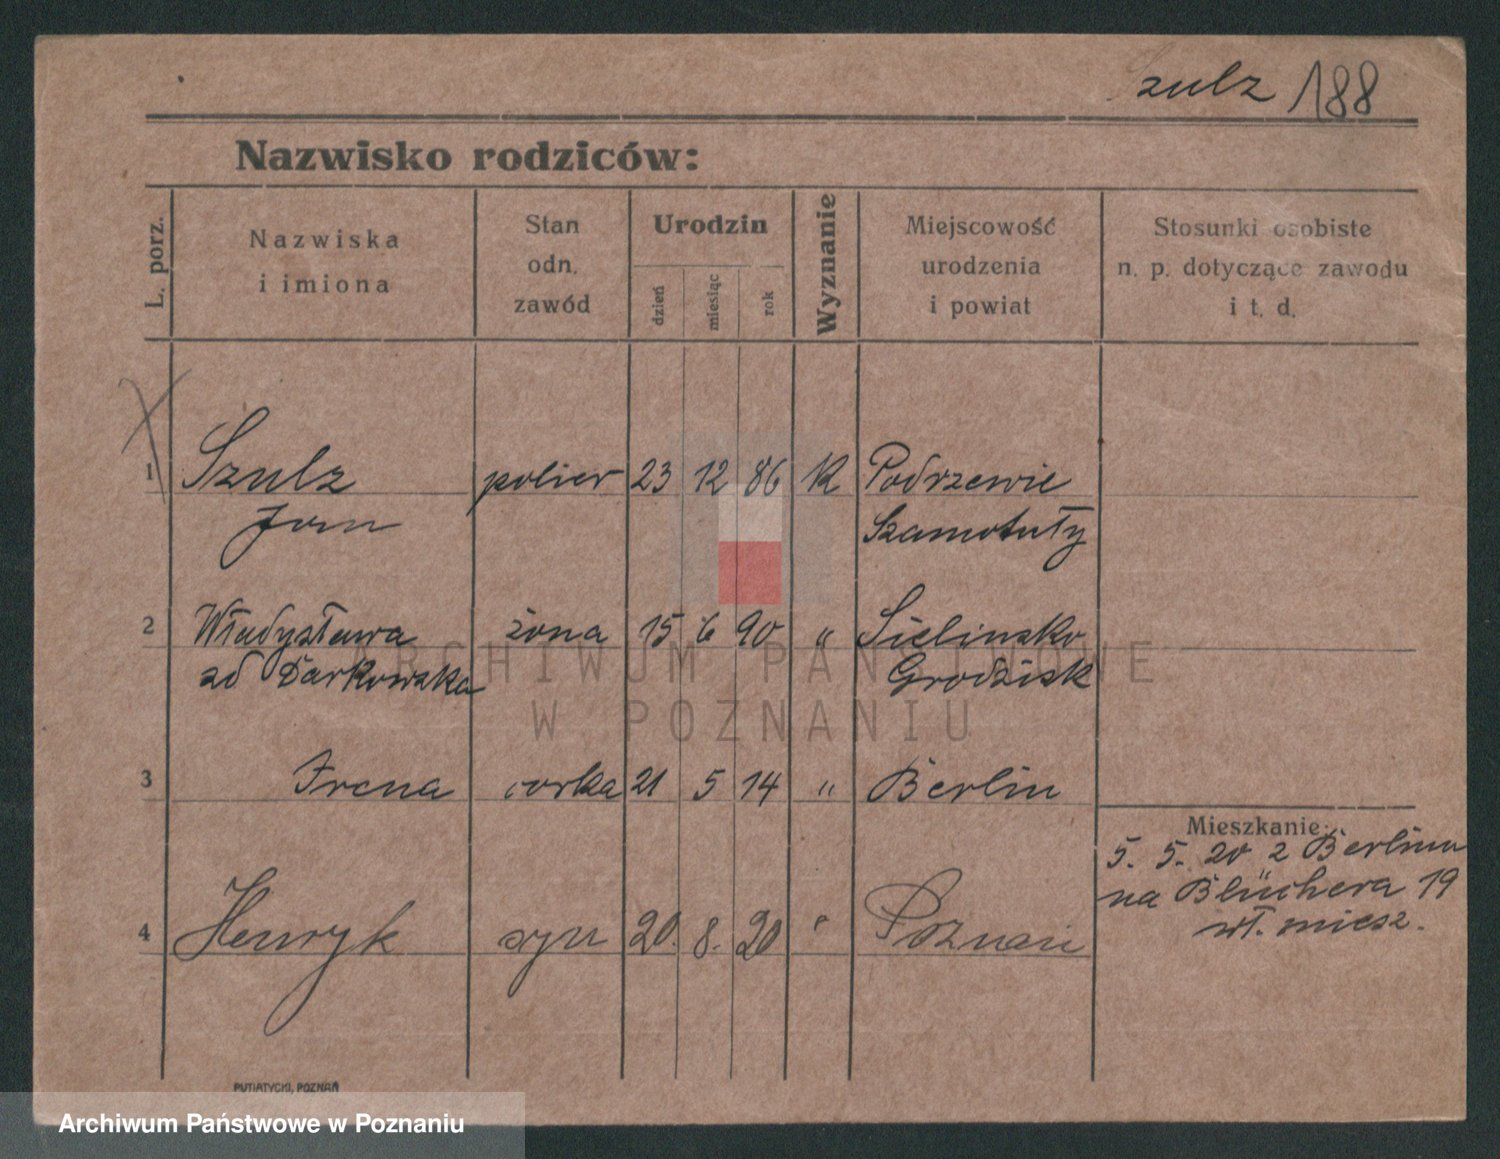 Szulz 188
Nazwisko rodziców:
L. porz.
Nazwiska
i imiona
Stan
odn.
zawód
Urodzin
dzień
miesiąc
rok
Wyznanie
Miejscowość
urodzenia
i powiat
Stosunki osobiste
n. p. dotyczące zawodu
i t. d.
1 Szulz polier 23 12 86 K Podrzewie
Jan Szamotuły
2 Władysława żona 15 6 90 " Sielinsko
zd Darkowska Grodzisk
3 Irena córka 21 5 14 " Berlin
Mieszkanie:
5. 5. 20 z Berlina
na Blüchera 19
wł. miesz.
4 Henryk syn 20. 8. 20 " Poznań
PUTIATYCKI, POZNAŃ
ARCHIWUM PAŃSTWOWE
W POZNANIU
Archiwum Państwowe w Poznaniu